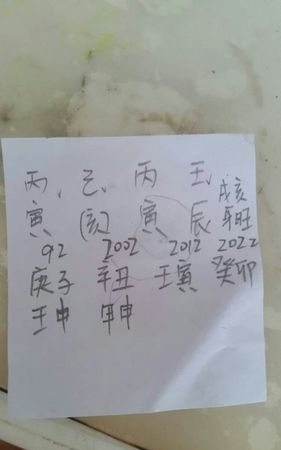 丙、乙、丙 壬、戌亥
寅 (亥) 寅 辰
92 2002 2012 2022
庚子 辛丑 壬寅 癸卯
壬申